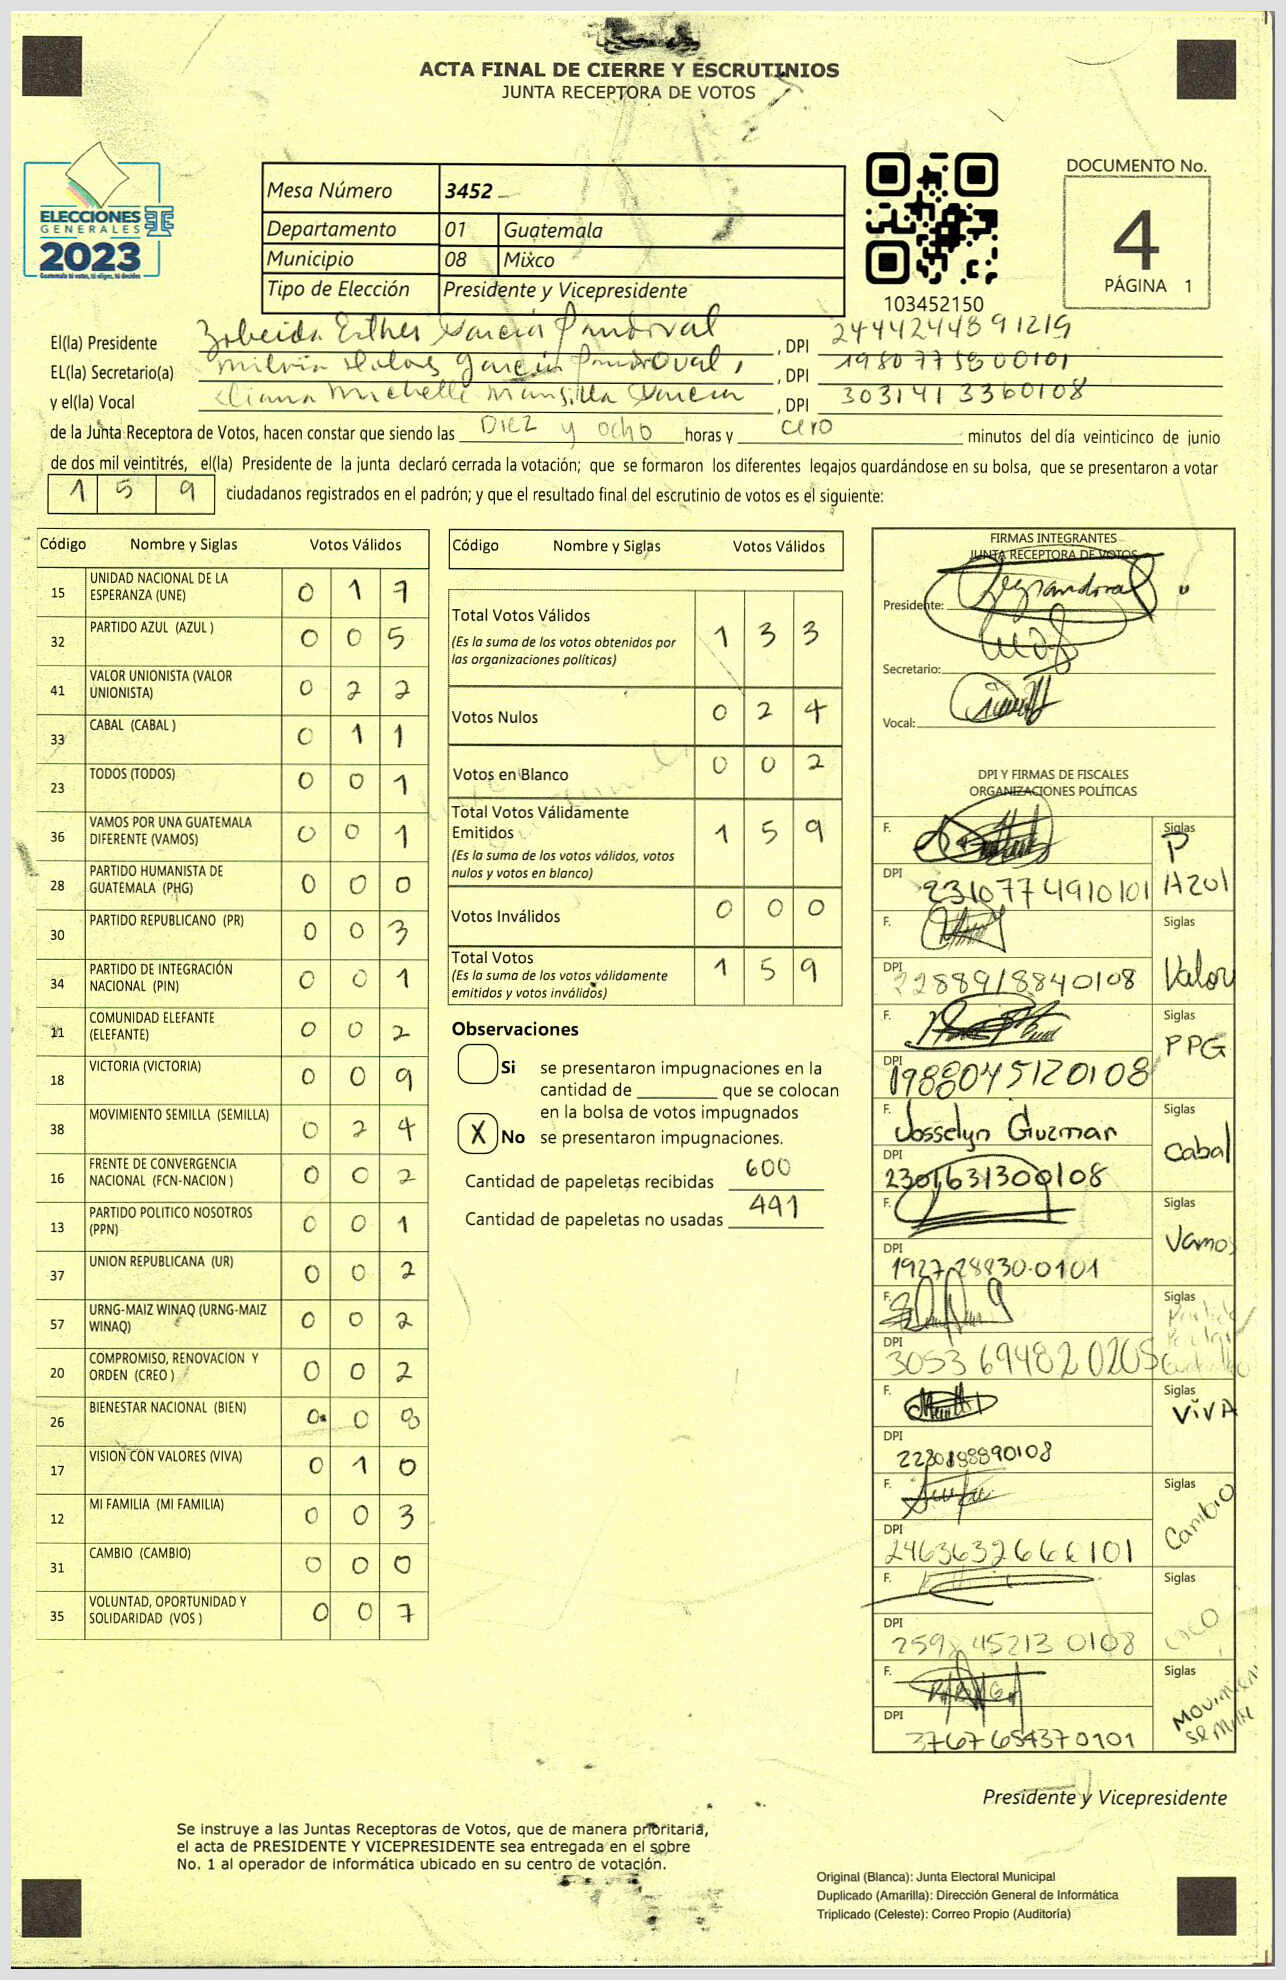 ACTA FINAL DE CIERRE Y ESCRUTINIOS
JUNTA RECEPTORA DE VOTOS
ELECCIONES
GENERALES
2023
Guatemala tú votas, tú eliges, tú decides
Mesa Número 3452
Departamento 01 Guatemala
Municipio 08 Mixco
Tipo de Elección Presidente y Vicepresidente
103452150
DOCUMENTO No.
4
PÁGINA 1
El(la) Presidente Zobeida Esther García Sandoval, DPI 2444244891219
EL(la) Secretario(a) García Sandoval, DPI 1980775800101
y el(la) Vocal Eliana Michelle Mansilla García, DPI 3031413360108
de la Junta Receptora de Votos, hacen constar que siendo las Diez y ocho horas y cero minutos del día veinticinco de junio
de dos mil veintitrés, el(la) Presidente de la junta declaró cerrada la votación; que se formaron los diferentes legajos guardándose en su bolsa, que se presentaron a votar
1 5 9 ciudadanos registrados en el padrón; y que el resultado final del escrutinio de votos es el siguiente:
Código Nombre y Siglas Votos Válidos
15 UNIDAD NACIONAL DE LA ESPERANZA (UNE) 0 1 7
32 PARTIDO AZUL (AZUL ) 0 0 5
41 VALOR UNIONISTA (VALOR UNIONISTA) 0 2 2
33 CABAL (CABAL ) 0 1 1
23 TODOS (TODOS) 0 0 1
36 VAMOS POR UNA GUATEMALA DIFERENTE (VAMOS) 0 0 1
28 PARTIDO HUMANISTA DE GUATEMALA (PHG) 0 0 0
30 PARTIDO REPUBLICANO (PR) 0 0 3
34 PARTIDO DE INTEGRACIÓN NACIONAL (PIN) 0 0 1
11 COMUNIDAD ELEFANTE (ELEFANTE) 0 0 2
18 VICTORIA (VICTORIA) 0 0 9
38 MOVIMIENTO SEMILLA (SEMILLA) 0 2 4
16 FRENTE DE CONVERGENCIA NACIONAL (FCN-NACION ) 0 0 2
13 PARTIDO POLITICO NOSOTROS (PPN) 0 0 1
37 UNION REPUBLICANA (UR) 0 0 2
57 URNG-MAIZ WINAQ (URNG-MAIZ WINAQ) 0 0 2
20 COMPROMISO, RENOVACION Y ORDEN (CREO ) 0 0 2
26 BIENESTAR NACIONAL (BIEN) 0 0 8
17 VISION CON VALORES (VIVA) 0 1 0
12 MI FAMILIA (MI FAMILIA) 0 0 3
31 CAMBIO (CAMBIO) 0 0 0
35 VOLUNTAD, OPORTUNIDAD Y SOLIDARIDAD (VOS ) 0 0 7
Código Nombre y Siglas Votos Válidos
Total Votos Válidos 1 3 3
(Es la suma de los votos obtenidos por
las organizaciones políticas)
Votos Nulos 0 2 4
Votos en Blanco 0 0 2
Total Votos Válidamente
Emitidos 1 5 9
(Es la suma de los votos válidos, votos
nulos y votos en blanco)
Votos Inválidos 0 0 0
Total Votos 1 5 9
(Es la suma de los votos válidamente
emitidos y votos inválidos)
Observaciones
Si se presentaron impugnaciones en la
cantidad de ________ que se colocan
en la bolsa de votos impugnados
X No se presentaron impugnaciones.
Cantidad de papeletas recibidas 600
Cantidad de papeletas no usadas 441
FIRMAS INTEGRANTES
JUNTA RECEPTORA DE VOTOS
Presidente:
Secretario:
Vocal:
DPI Y FIRMAS DE FISCALES
ORGANIZACIONES POLÍTICAS
F. Siglas P Azul
DPI 2310774910101
F. Siglas Valor
DPI 2288918840108
F. Siglas PPG
DPI 1988045120108
F. Josselyn Guzman Siglas Cabal
DPI 2301631300108
F. Siglas Vamos
DPI 1927288300101
F. Siglas
DPI 3053694820205
F. Siglas VIVA
DPI 2230188890108
F. Siglas Cambio
DPI 2463632660101
F. Siglas
DPI 2598452130108
F. Siglas
DPI 3767654370101
Presidente y Vicepresidente
Se instruye a las Juntas Receptoras de Votos, que de manera prioritaria,
el acta de PRESIDENTE Y VICEPRESIDENTE sea entregada en el sobre
No. 1 al operador de informática ubicado en su centro de votación.
Original (Blanca): Junta Electoral Municipal
Duplicado (Amarilla): Dirección General de Informática
Triplicado (Celeste): Correo Propio (Auditoría)